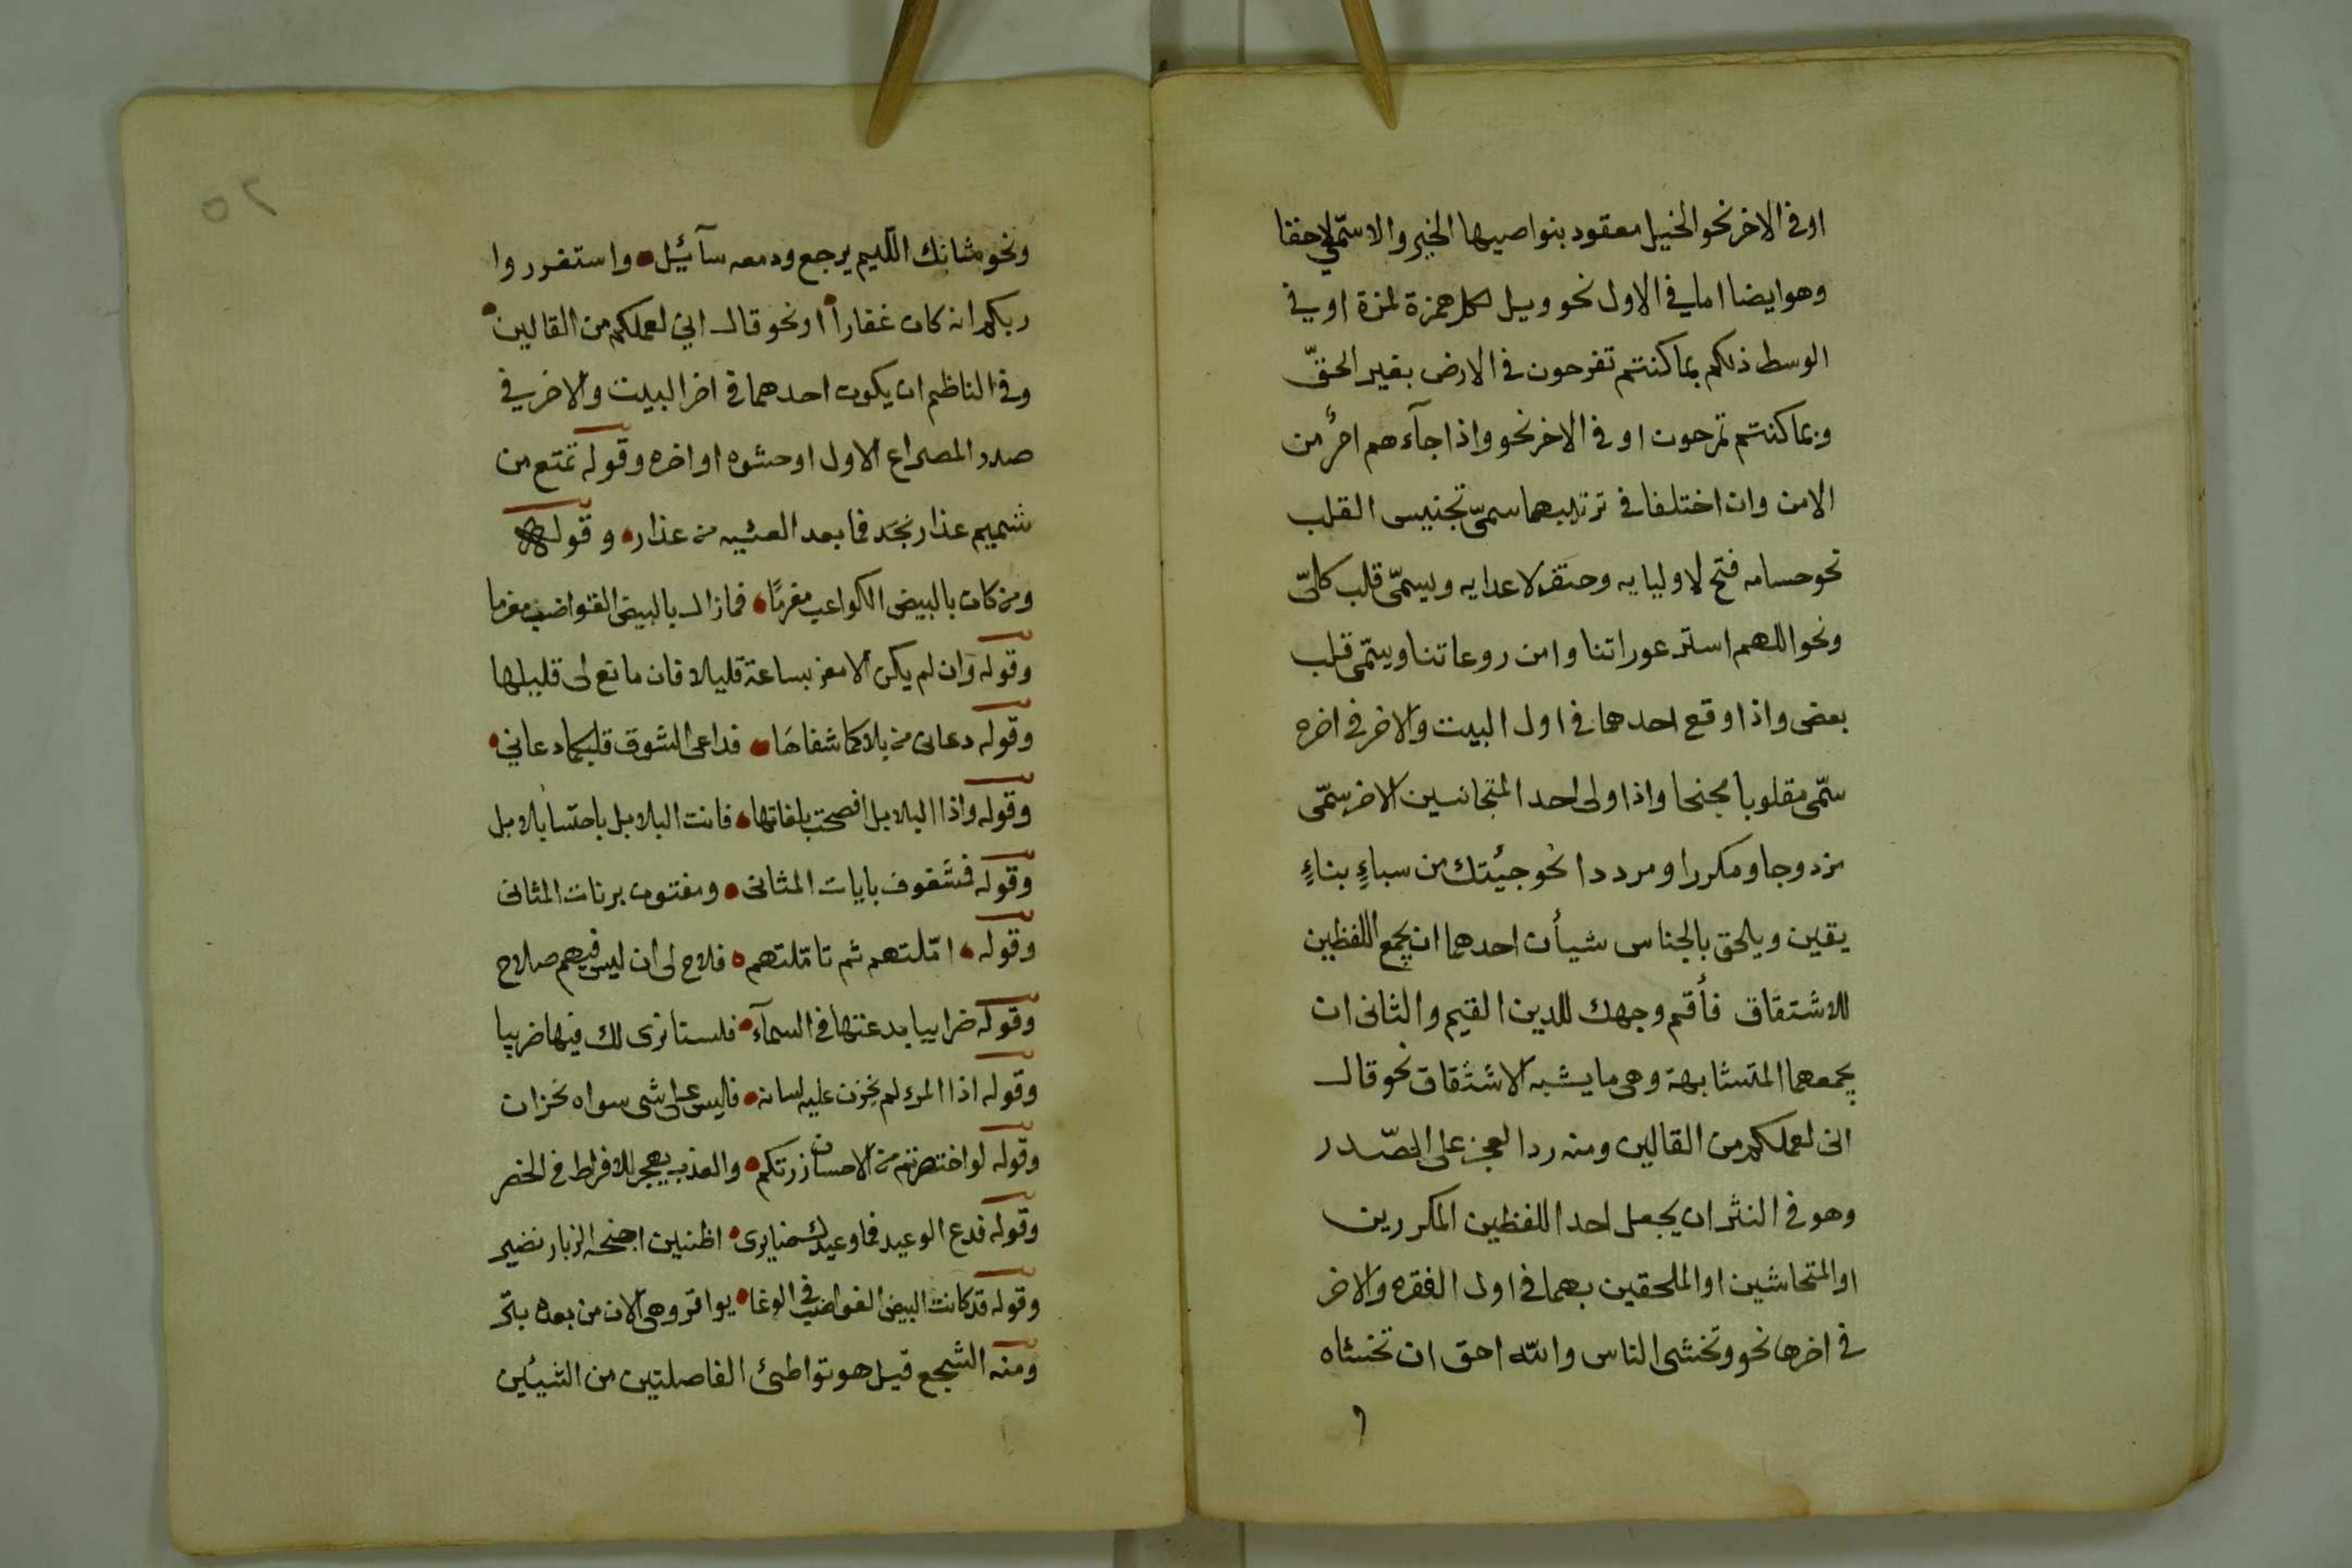 اوفى الاخر نحو الخيل معقود بنواصيها الخير والا سمّى لاحقا
وهو ايضا اما فى الاول نحو ويل لكل همزة لمزة اوفى
الوسط ذلكم بما كنتم تفرحون فى الارض بغير الحقّ
وبما كنتم تمرحون او فى الاخر نحو واذا جآءهم امرٌ من
الامن وان اختلفا فى ترتيبهما سمىّ تجنيس القلب
نحو حسامه فتح لاوليايه وحتف لاعدايه ويسمّى قلب كلىّ
ونحو اللهم استر عوراتنا وامن روعاتنا ويسمّى قلب
بعض واذا وقع احدهما فى اول البيت والاخر فى اخره
سمّى مقلوبا مجنحا واذا ولى احد المتجانسين الاخر سمّى
مزدوجا ومكررا ومرددا نحو جئتك من سباءٍ بناءٍ
يقين ويلحق بالجناس شيأن احدهما ان يجمع اللفظين
للاشتقاق فأقم وجهك للدين القيم والثانى ان
يجمعهما المتشابهة وهى ما يشبه الاشتقاق نحو قال
انى لعملكم من القالين ومنه رد العجز على الصّدر
وهو فى النثر ان يجعل احد اللفظين المكررين
او المتجانسين او الملحقين بهما فى اول الفقره والاخر
فى اخرها نحو وتخشى الناس والله احق ان تخشاه
٢٥
ونحو سٔايل اللئيم يرجع ودمعه سآئيل واستغفروا
ربكم انه كان غفاراً او نحو قال انى لعملكم من القالين
وفى الناظم ان يكون احدهما فى اخر البيت والاخر فى
صدر المصراع الاول او حشوه او اخره وقوله تمتع من
شميم عذار نجد فما بعد العشيه من عذار وقوله
ومن كان بالبيض الكواعب مغرمًا فما زال بالبيض القواضب مغرما
وقوله وان لم يكن الا معز بساعة قليلا فان مانع لى قليلها
وقوله دعانى من بلاكما شفاهَا فداعى الشوق قبلكما دعانى
وقوله واذا البلابل افصحت بلغاتها فانت البلابل باحتسا بلابل
وقوله فشغوف بايات المثانى ومفتون برنات المثانى
وقوله امّلتهم ثم تامّلتهم فلاح لى ان ليس فيهم صلاح
وقوله ضرايبا بدعتها فى السمآء فلسنا نرى لك فيها ضريبا
وقوله اذا المرء لم يخزن عليه لسانه فليس على شى سواه بخزان
وقوله لو اختصرتم من الاحسان زرتكم والعذب يهجر للافراط فى الخصر
وقوله فدع الوعيد فما وعيدك ضايرى اطنين اجنحه الذباب يضير
وقوله قد كانت البيض القواضب فى الوغا بواتر وهى الان من بعده بتر
ومنه السّجع قيل هو تواطئ الفاصلتين من الشيئين